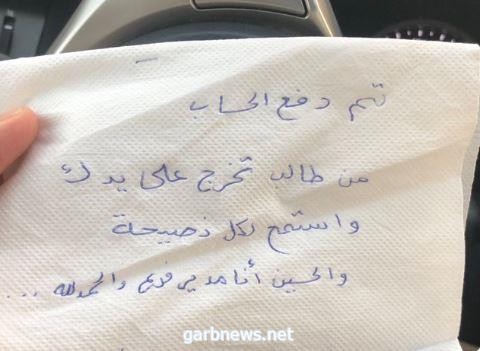 تم دفع الحساب
من طالب تخرج على يدك
واستمع لكل نصيحة
والحين أنا مدير فرع والحمدلله ...
garbnews.net